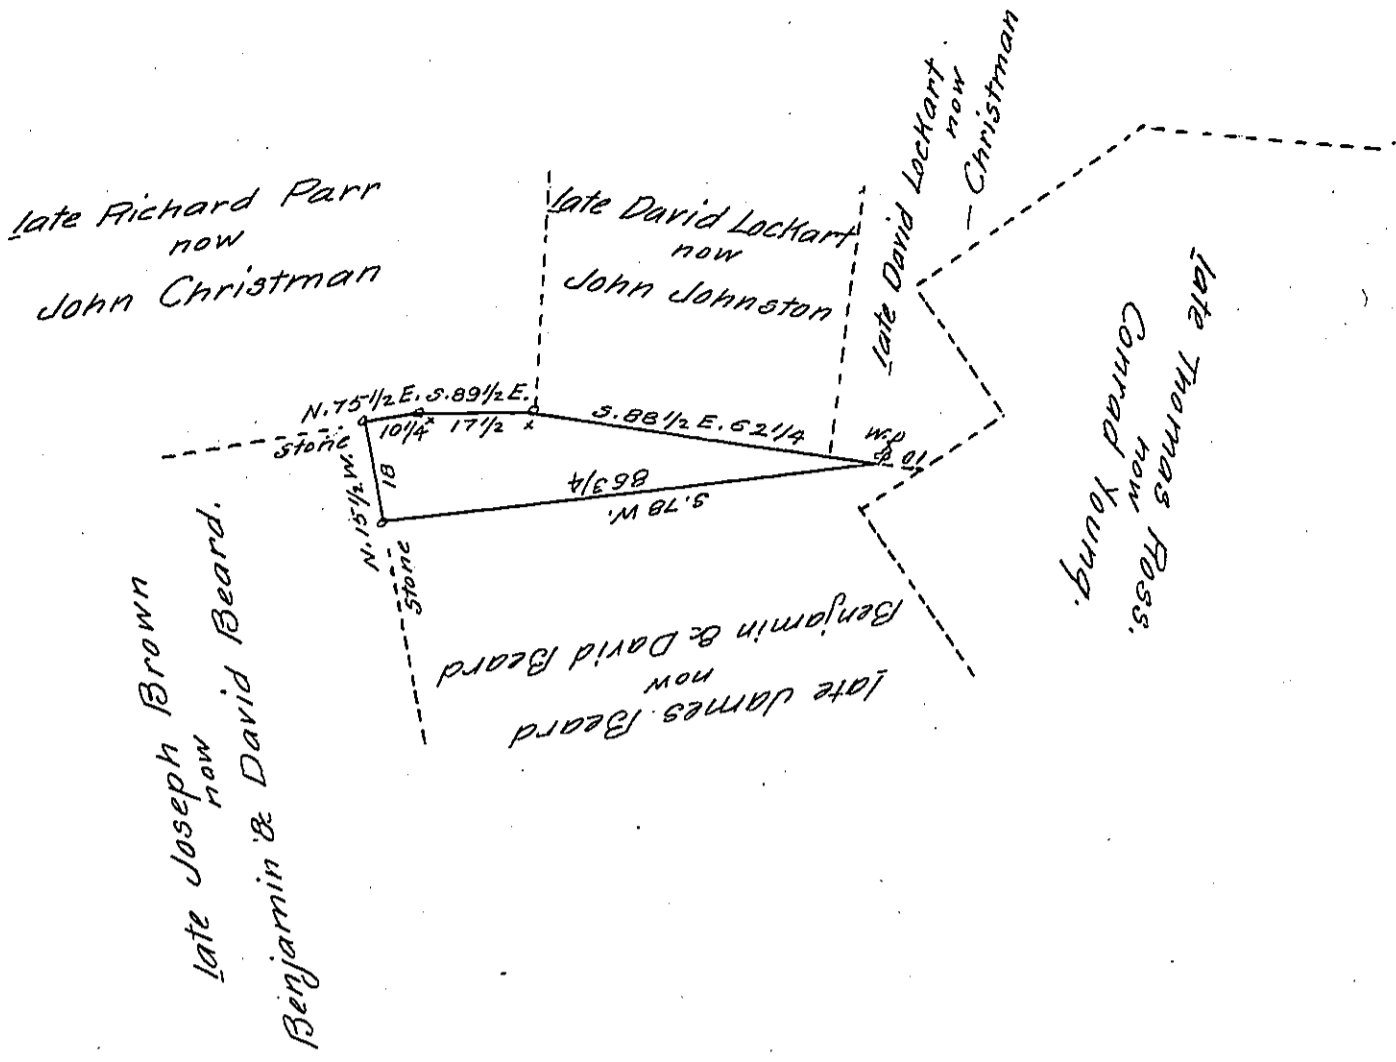 late Richard Parr
now
John Christman
late David Lockart
now
John Johnston
late David Lockart
now
— Christman
late Thomas Ross.
now
Conrad Young.
N.75 1/2 E.
10 1/4
S.89 1/2 E.
17 1/2
S.88 1/2 E. 62 1/4
W.P
10
stone
N.15 1/2 W.
18
86 3/4
S.78 W.
stone
late James Beard
now
Benjamin & David Beard
late Joseph Brown
now
Benjamin & David Beard.